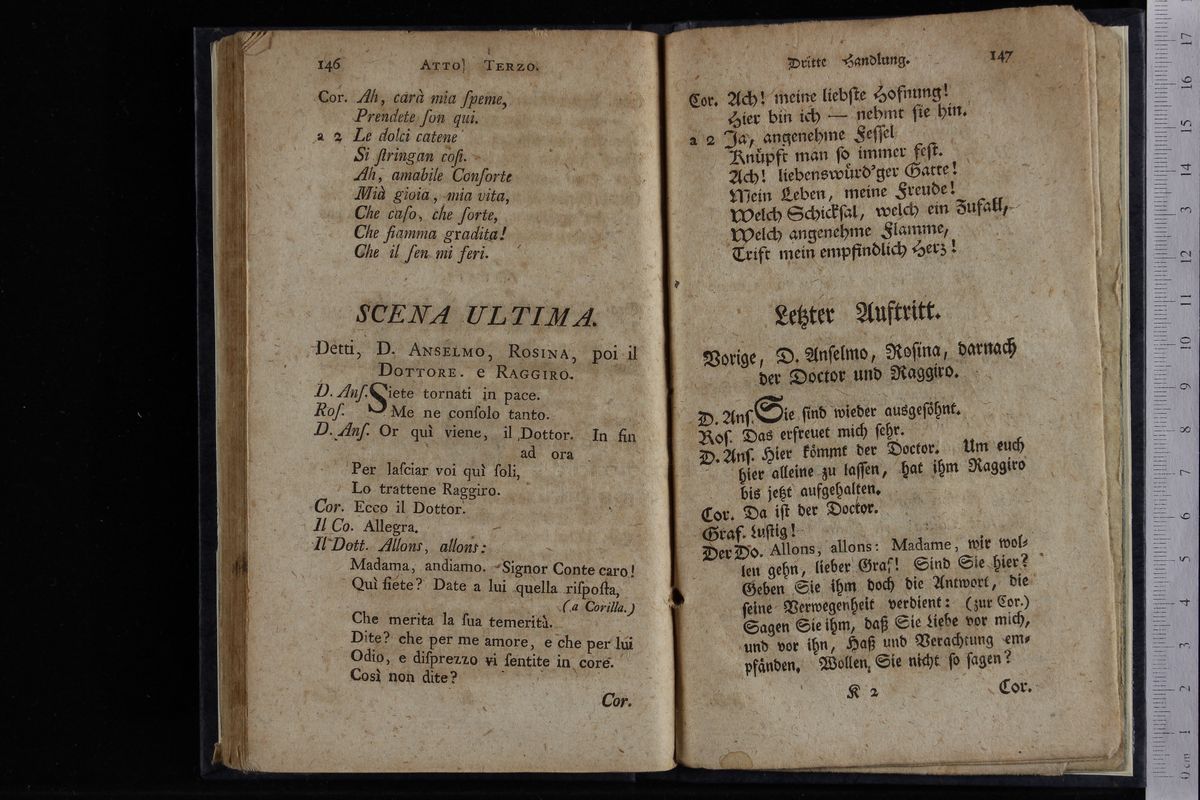 146 ATTO TERZO.
Cor. Ah, carà mia ſpeme,
Prendete ſon qui.
a 2 Le dolci catene
Si ſtringan coſi.
Ah, amabile Conſorte
Mià gioia, mia vita,
Che caſo, che ſorte,
Che fiamma gradita!
Che il ſen mi ferì.
SCENA ULTIMA.
Detti, D. ANSELMO, ROSINA, poi il
DOTTORE. e RAGGIRO.
D. Anſ. Siete tornati in pace.
Roſ. Me ne conſolo tanto.
D. Anſ. Or quì viene, il Dottor. In fin
ad ora
Per laſciar voi quì ſoli,
Lo trattene Raggiro.
Cor. Ecco il Dottor.
Il Co. Allegra.
Il Dott. Allons, allons:
Madama, andiamo. Signor Conte caro!
Quì ſiete? Date a lui quella riſpoſta,
(a Corilla.)
Che merita la ſua temerità.
Dite? che per me amore, e che per lui
Odio, e diſprezzo vi ſentite in core.
Così non dite?
Cor.
Dritte Handlung. 147
Cor. Ach! meine liebſte Hofnung!
Hier bin ich — nehmt ſie hin.
a 2 Ja, angenehme Feſſel
Knüpft man ſo immer feſt.
Ach! liebenswürd'ger Gatte!
Mein Leben, meine Freude!
Welch Schickſal, welch ein Zufall,
Welch angenehme Flamme,
Trift mein empfindlich Herz!
Letzter Auftritt.
Vorige, D. Anſelmo, Roſina, darnach
der Doctor und Raggiro.
D. Anſ. Sie ſind wieder ausgeſöhnt.
Roſ. Das erfreuet mich ſehr.
D. Anſ. Hier kömmt der Doctor. Um euch
hier alleine zu laſſen, hat ihm Raggiro
bis jetzt aufgehalten.
Cor. Da iſt der Doctor.
Graf. Luſtig!
Der Do. Allons, allons: Madame, wir wol-
len gehn, lieber Graf! Sind Sie hier?
Geben Sie ihm doch die Antwort, die
ſeine Verwegenheit verdient: (zur Cor.)
Sagen Sie ihm, daß Sie Liebe vor mich,
und vor ihn, Haß und Verachtung em-
pfänden. Wollen Sie nicht ſo ſagen?
K 2 Cor.